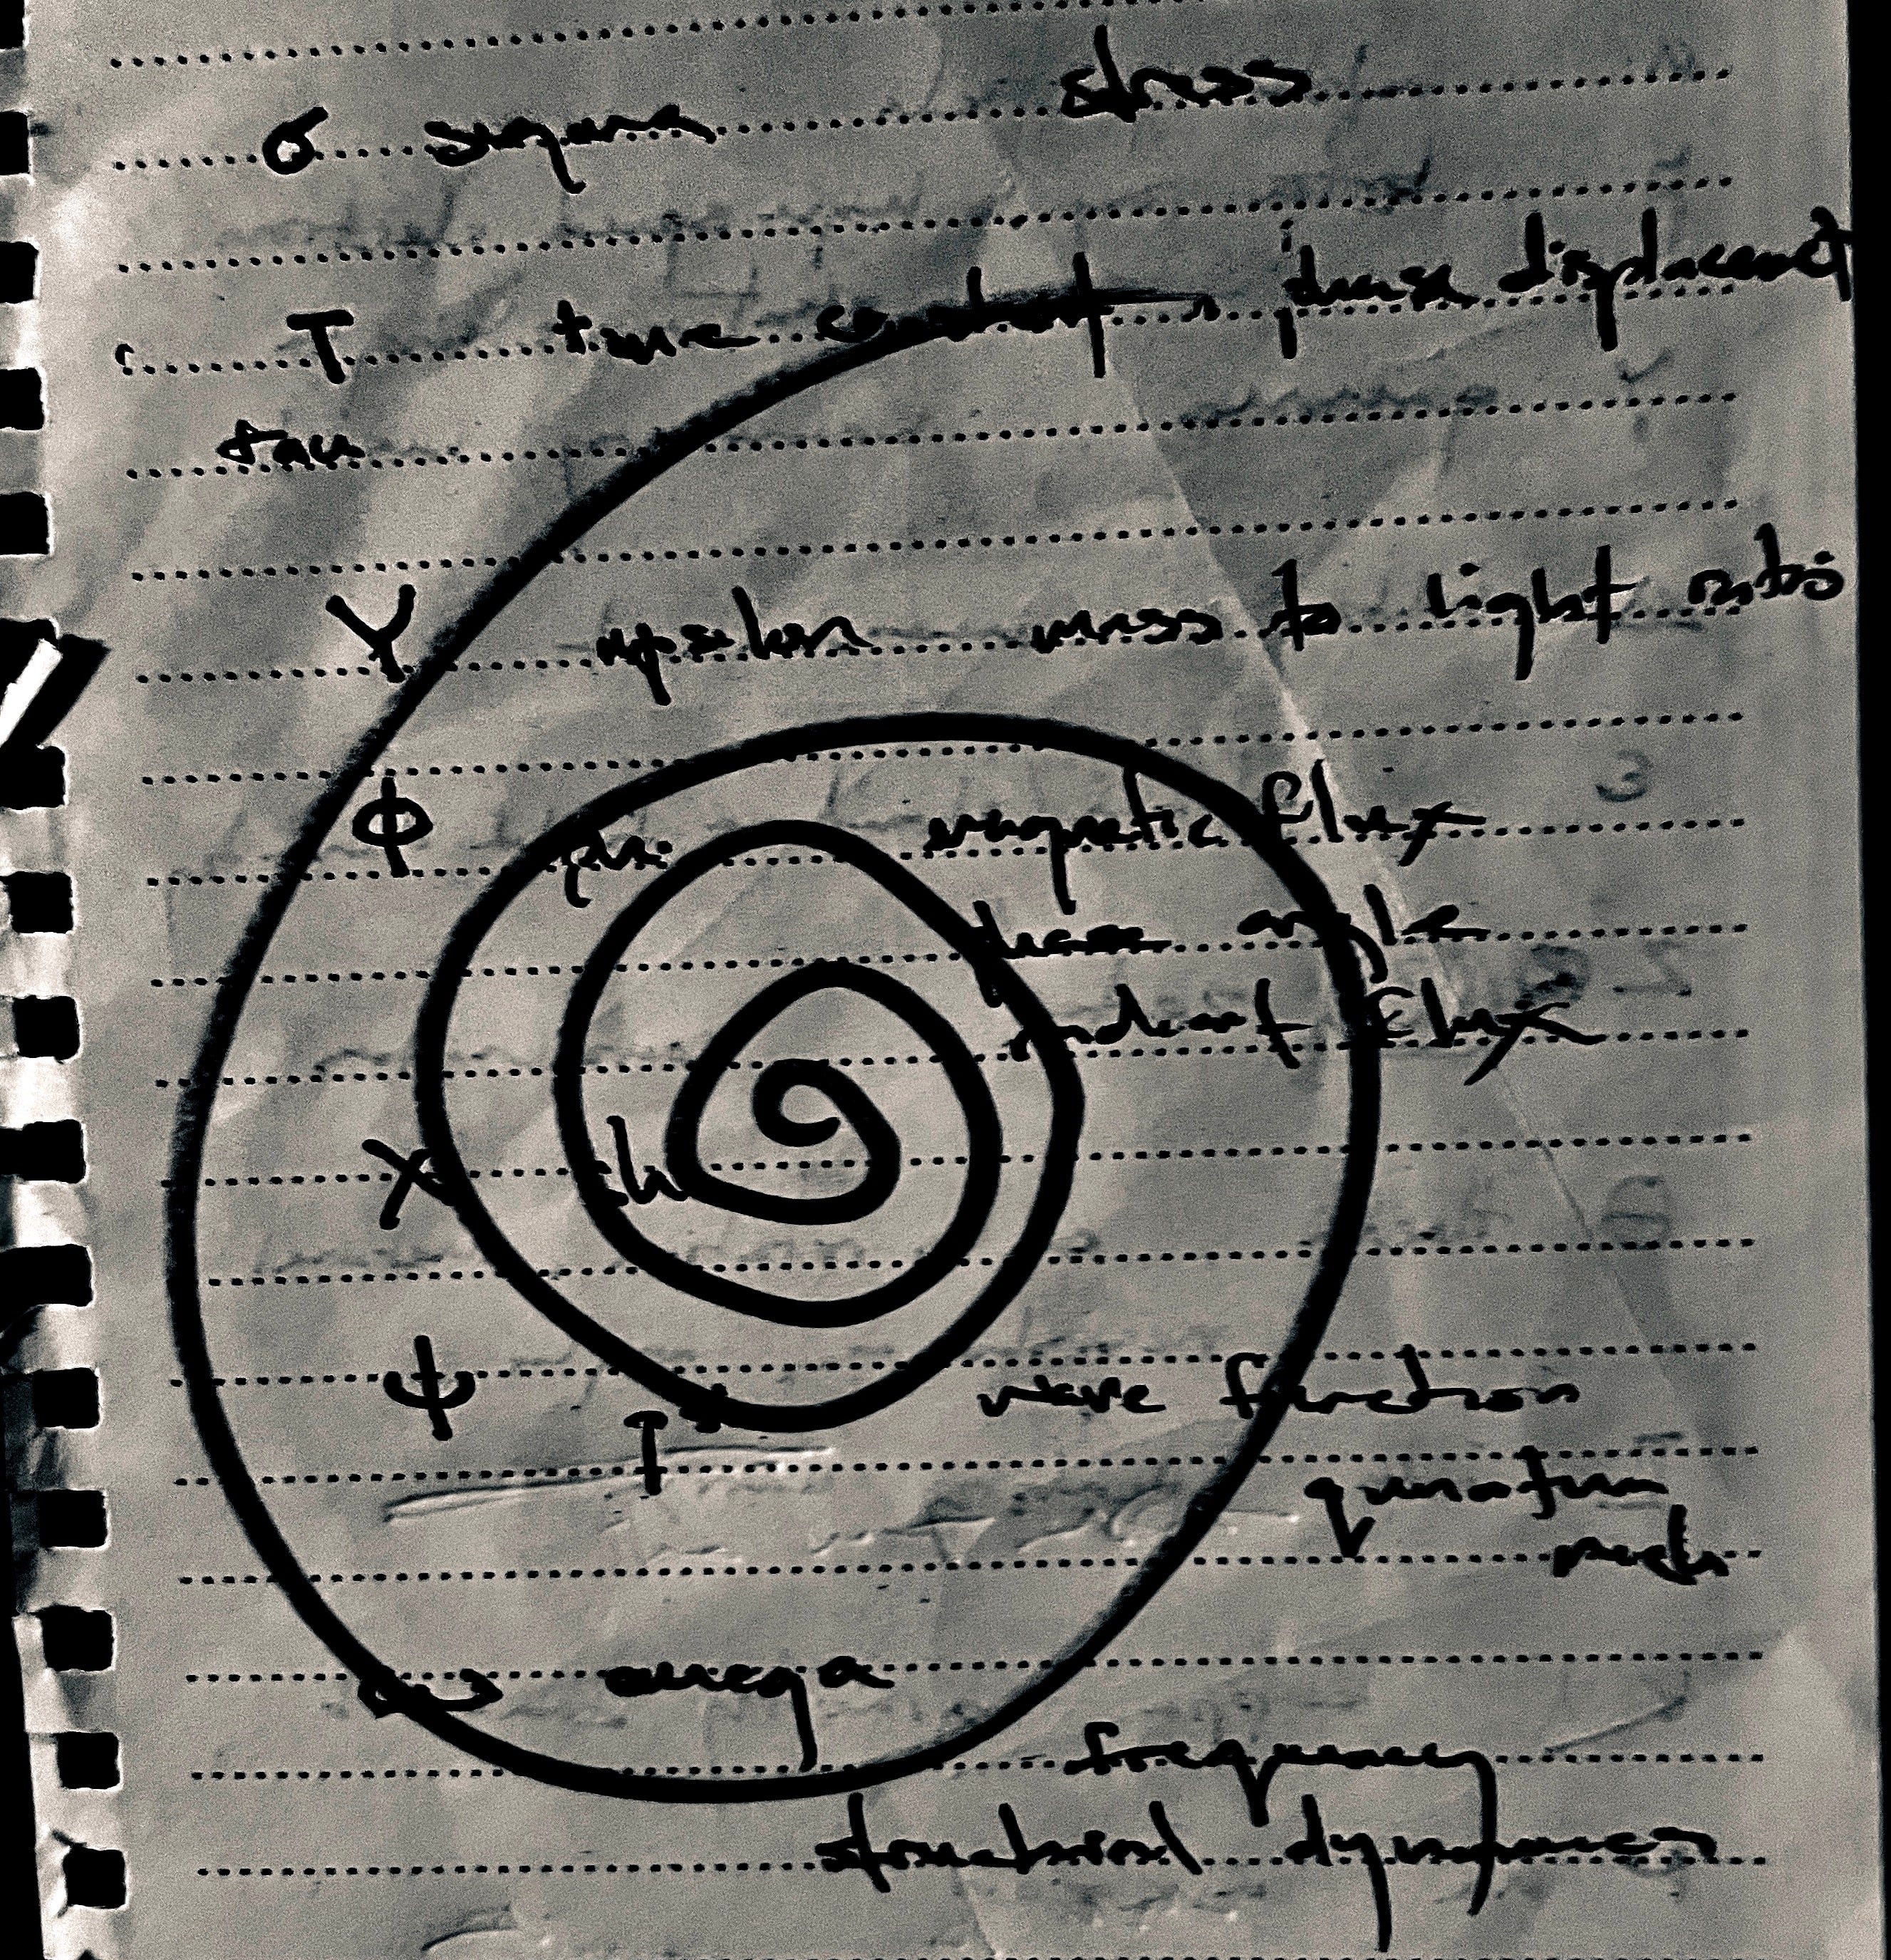 σ sigma stress
τ time constant, phase displacement
tau
Υ upsilon mass to light ratio
Φ phi magnetic flux
phase angle
radiant flux
χ chi
ψ wave function
quantum
mech
ω omega
frequency
structural dynamics